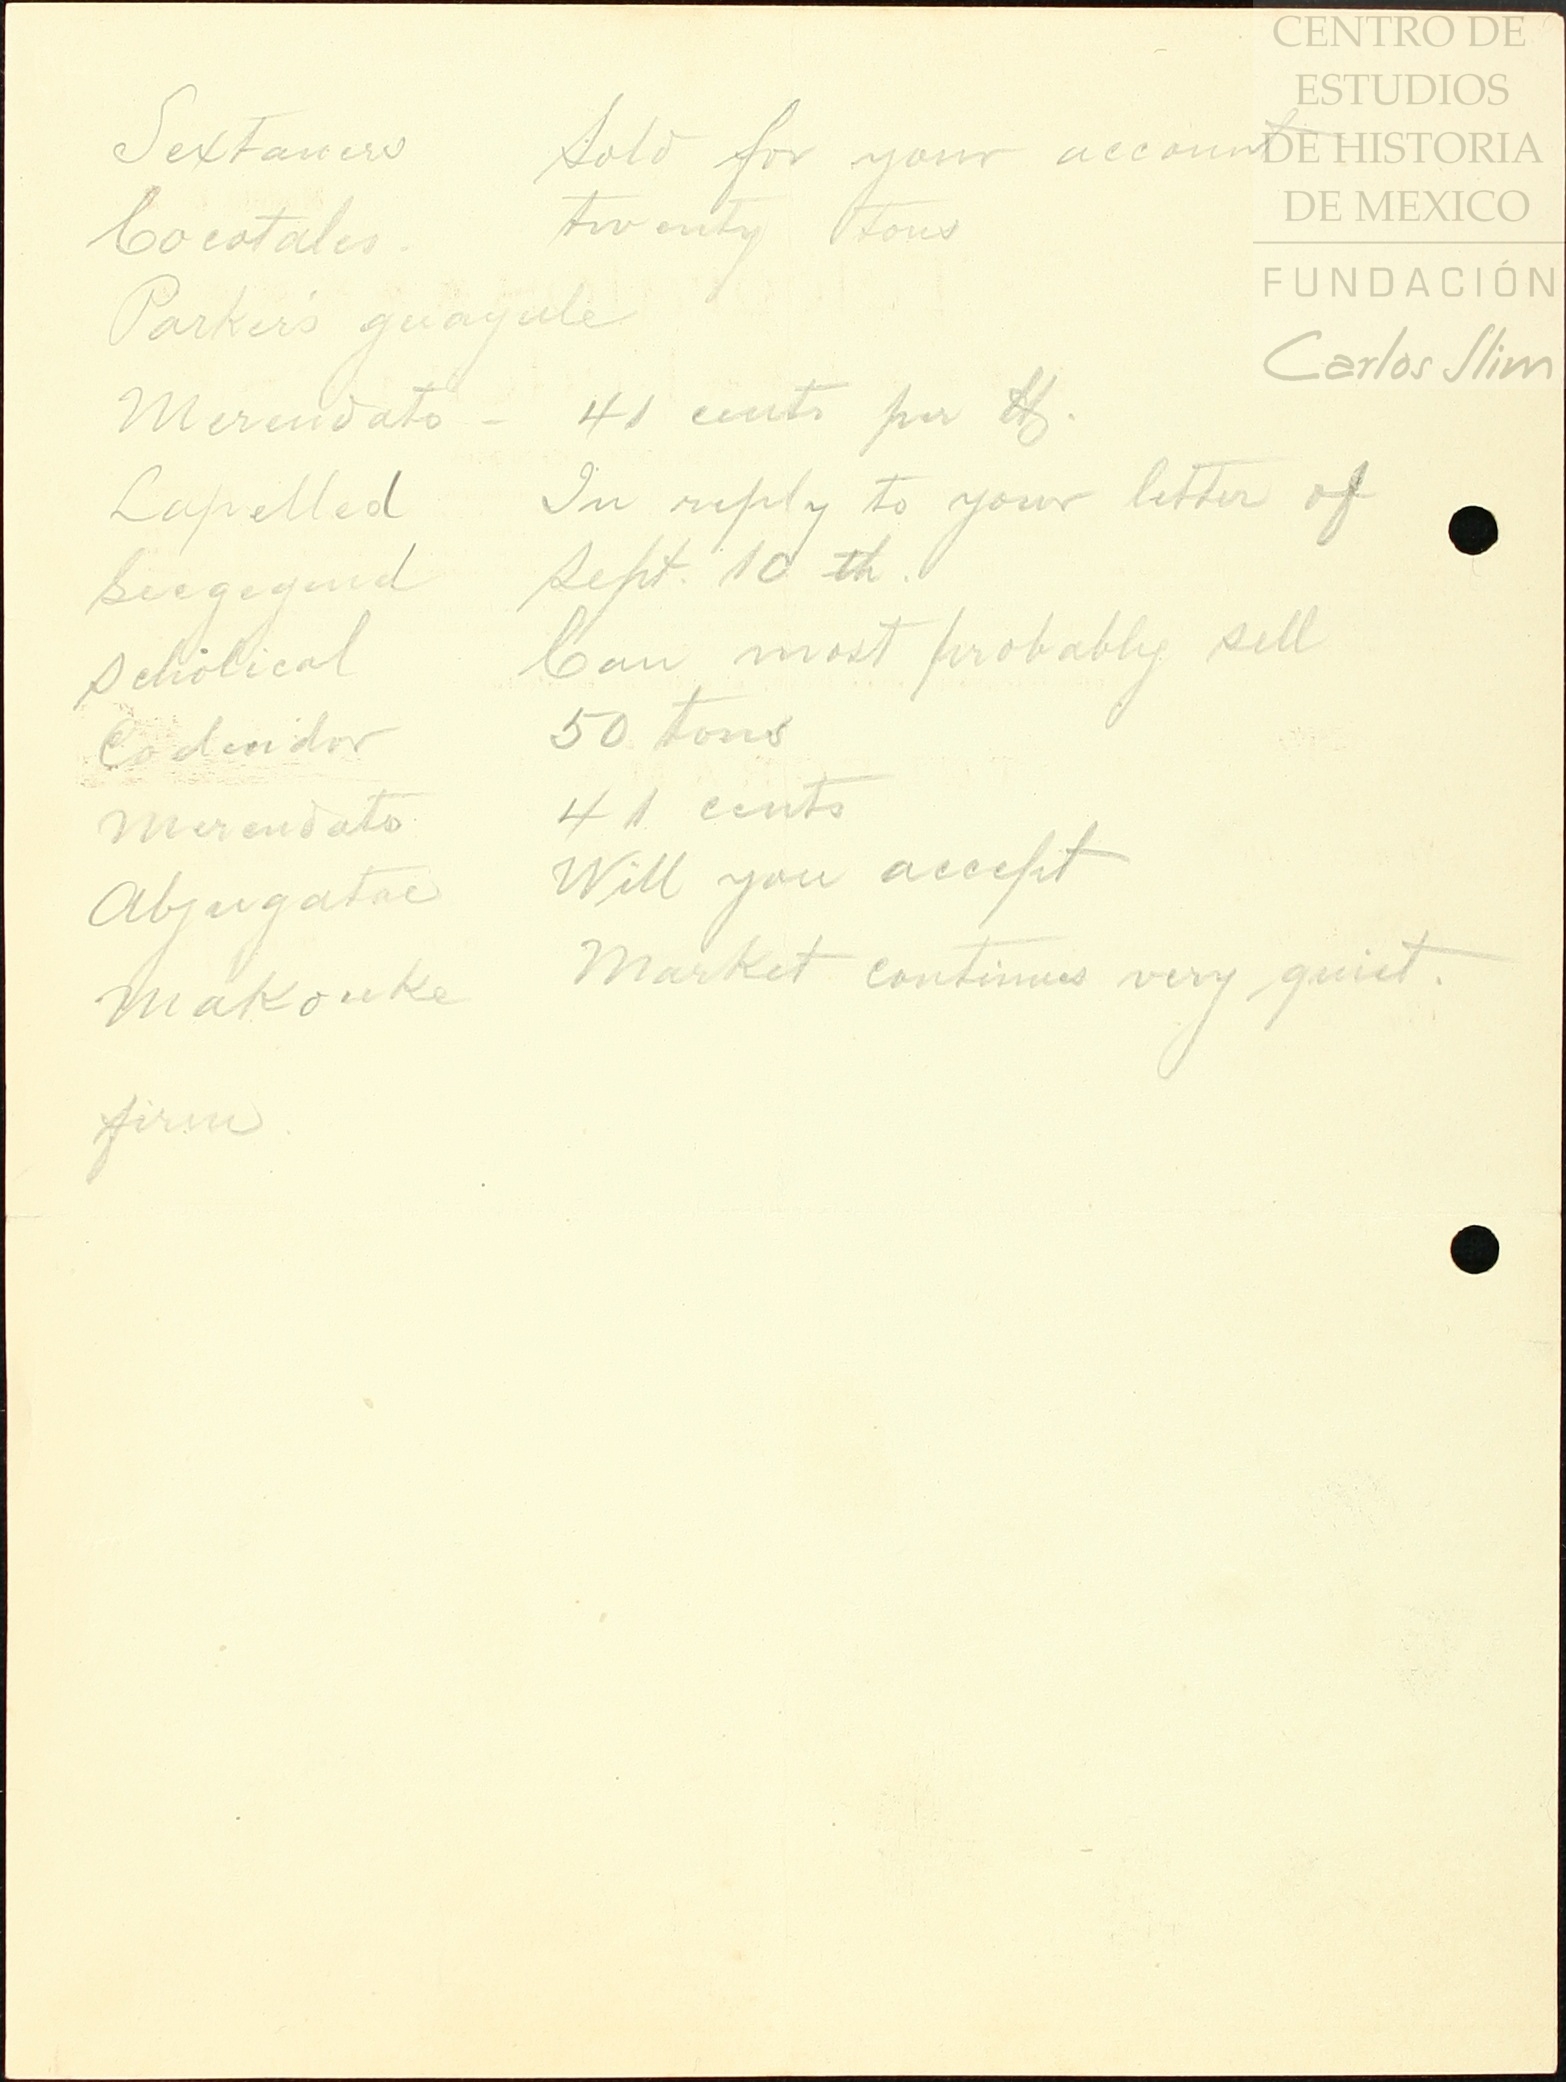 CENTRO DE
ESTUDIOS
DE HISTORIA
DE MEXICO
FUNDACIÓN
Carlos Slim
Sextaners Sold for your account
Cocotales. twenty tons
Parker's guayule
Merendato - 41 cents per lb.
Lapelled In reply to your letter of
Sept. 10 th.
Scholical Can most probably sell
Codeidor 50 tons
Merendato 41 cents
Abjugatae Will you accept
Makouke Market continues very quiet.
firm.